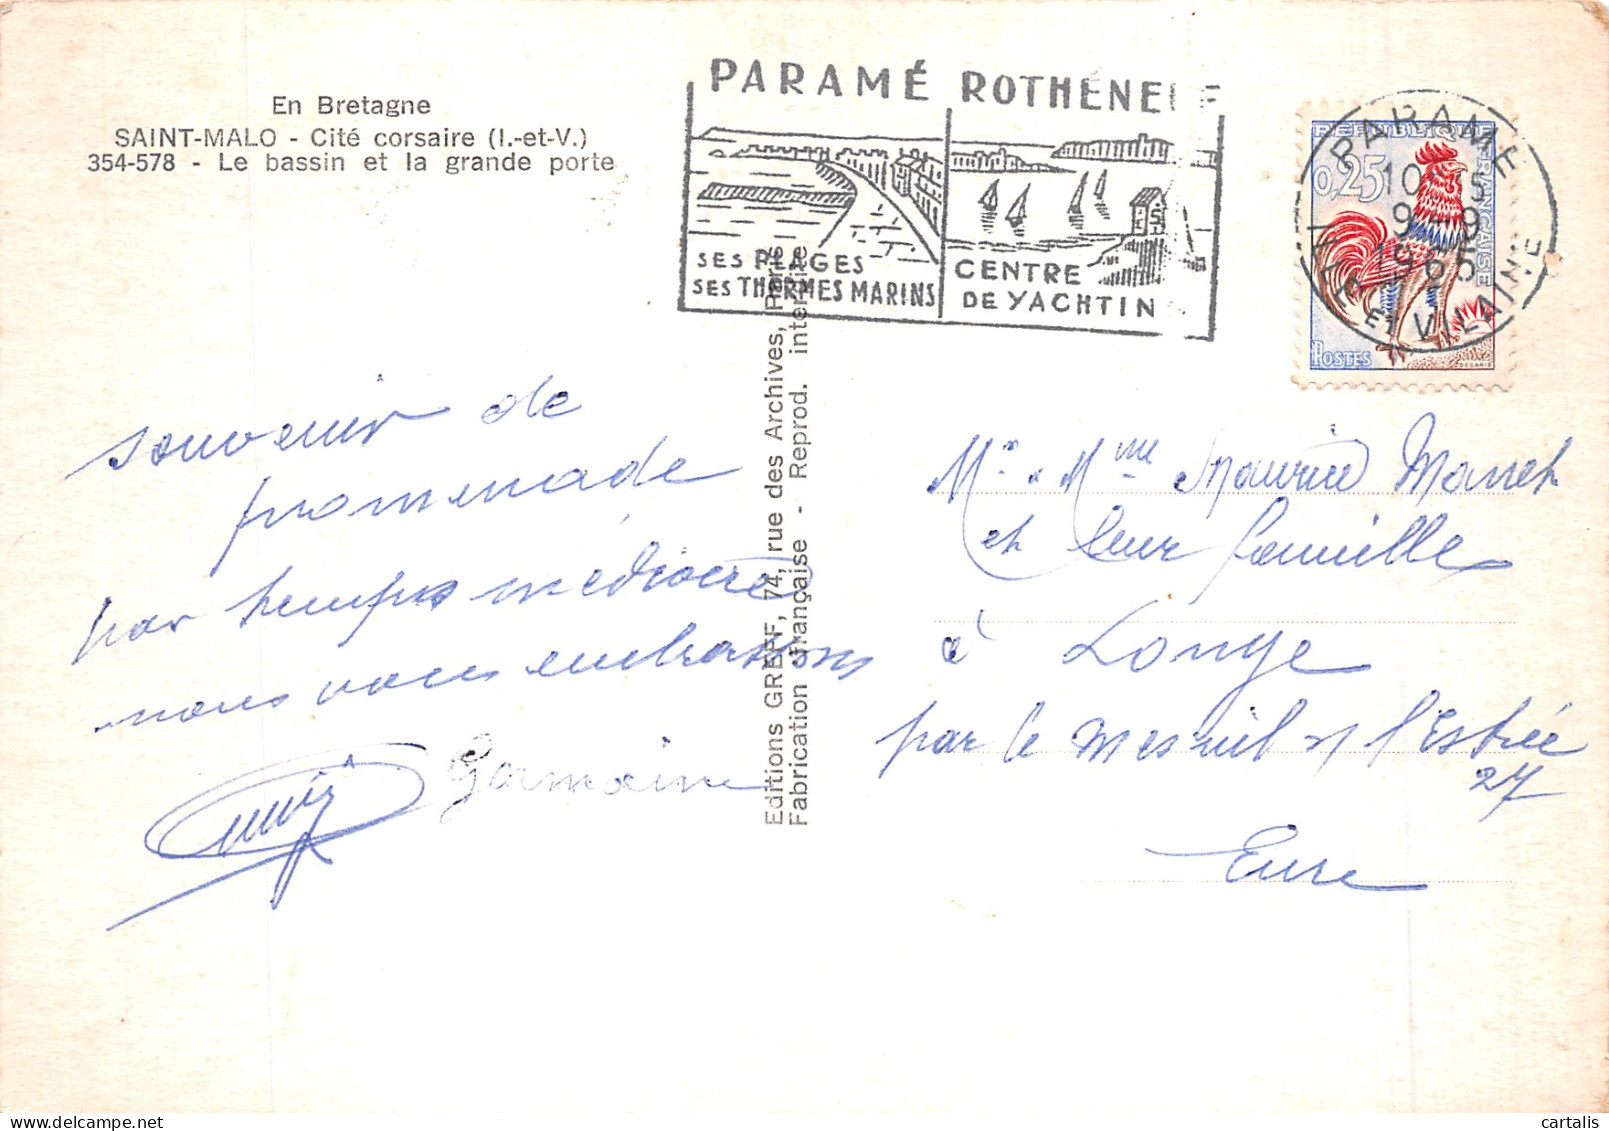 En Bretagne
SAINT-MALO - Cité corsaire (I.-et-V.)
354-578 - Le bassin et la grande porte
PARAMÉ ROTHÉNE F
SES PLAGES
SES THERMES MARINS
CENTRE
DE YACHTIN
PARAME
10
9-9
1965
ILLE ET VILAINE
REPUBLIQUE FRANÇAISE
0,25
POSTES
DECARIS
Editions GREFF, 74, rue des Archives, Paris
Fabrication Française - Reprod. interdite
souvenir de
promenade
par temps médiocre
nous vous embrassons
Germaine
Mr & Mme Maurice
et leur famille
à Louye
par le Mesnil s/ l'Estrée
27
Eure
cartalis